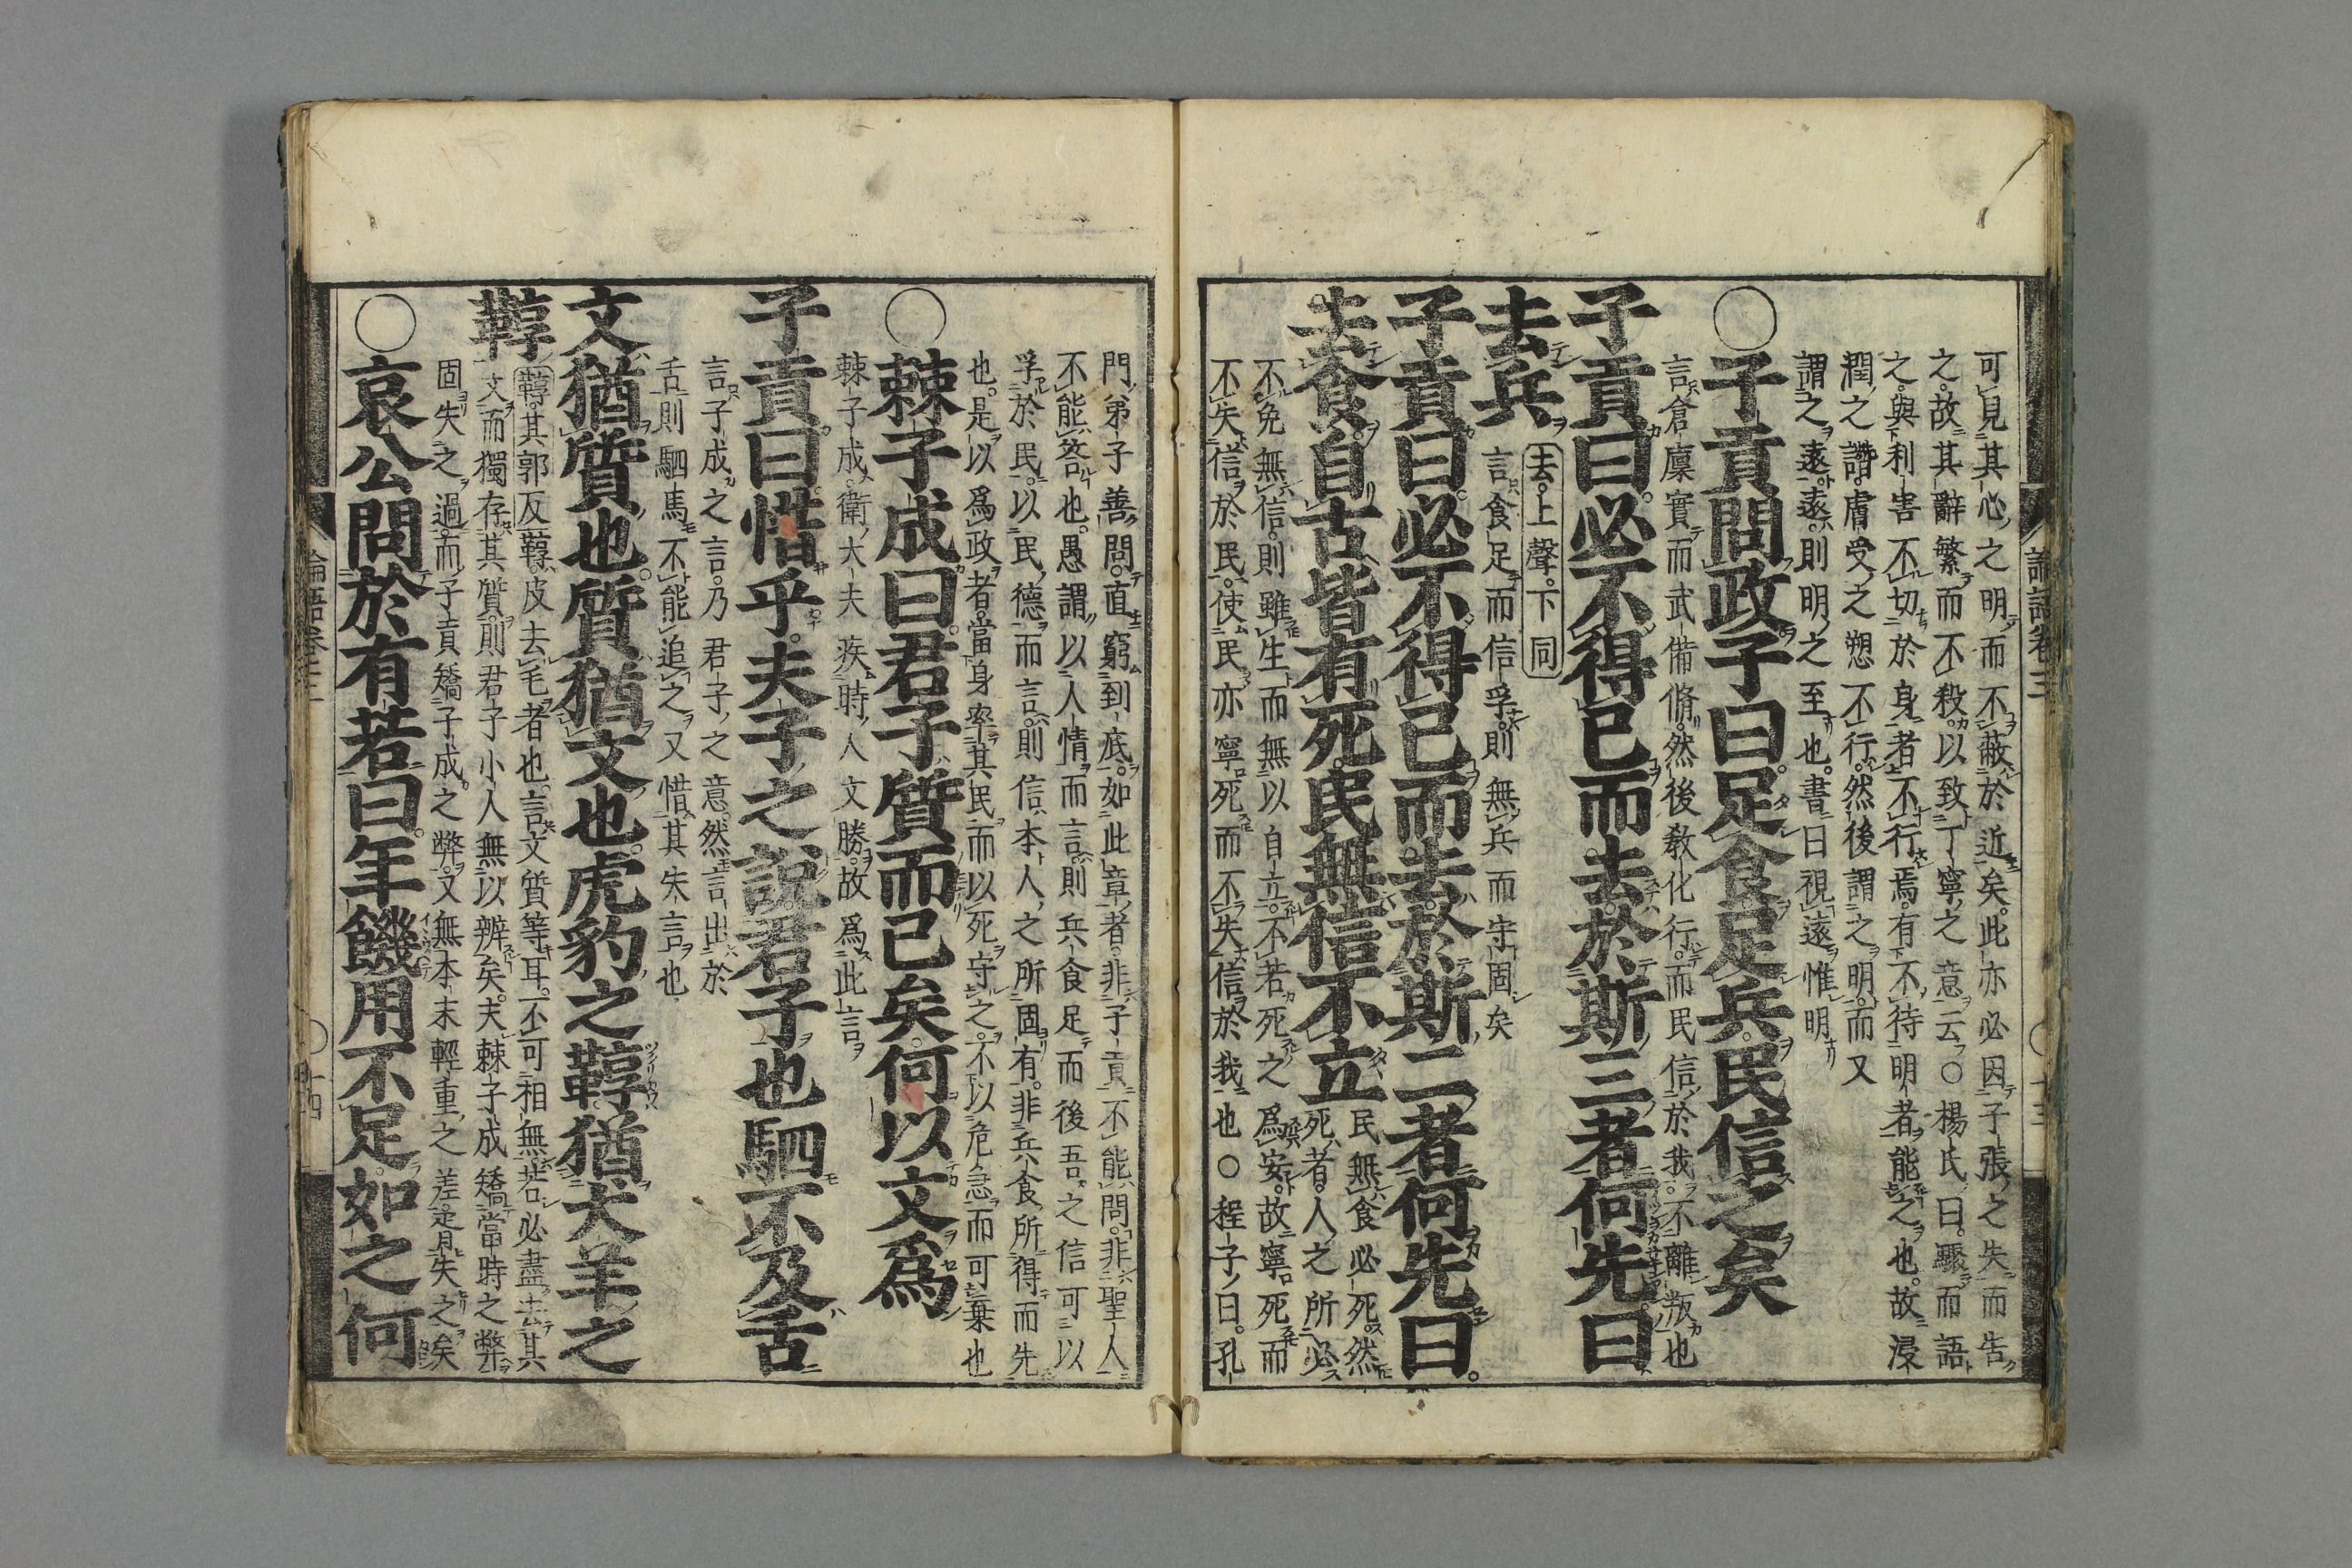 可見其心之明而不蔽於近矣此亦必因子張之失而告
之故其辭繁而不殺以致丁寧之意云○楊氏曰驟而語
之與利害不切於身者不行焉有不待明者能之也故浸
潤之譖膚受之愬不行然後謂之明而又
謂之遠遠則明之至也書曰視遠惟明
○子貢問政子曰足食足兵民信之矣
言倉廩實而武備脩然後教化行而民信於我不離叛也
子貢曰必不得已而去於斯三者何先曰
去兵
去上聲下同
言食足而信孚則無兵而守固矣
子貢曰必不得已而去於斯二者何先曰
去食自古皆有死民無信不立
民無食必死然
死者人之所必
不免無信則雖生而無以自立不若死之爲安故寧死而
不失信於民使民亦寧死而不失信於我也○程子曰孔
論語卷三
門弟子善問直窮到底如此章者非子貢不能問非聖人
不能答也愚謂以人情而言則兵食足而後吾之信可以
孚於民以民德而言則信本人之所固有非兵食所得而先
也是以爲政者當身率其民而以死守之不以危急而可棄也
○棘子成曰君子質而已矣何以文爲
棘子成衛大夫疾時人文勝故爲此言
子貢曰惜乎夫子之說君子也駟不及舌
言子成之言乃君子之意然言出於
舌則駟馬不能追之又惜其失言也
文猶質也質猶文也虎豹之鞟猶犬羊之
鞟
鞟其郭反鞟皮去毛者也言文質等耳不可相無若必盡去其
文而獨存其質則君子小人無以辨矣夫棘子成矯當時之弊
固失之過而子貢矯子成之弊又無本末輕重之差胥失之矣
○哀公問於有若曰年饑用不足如之何
論語卷三
十四